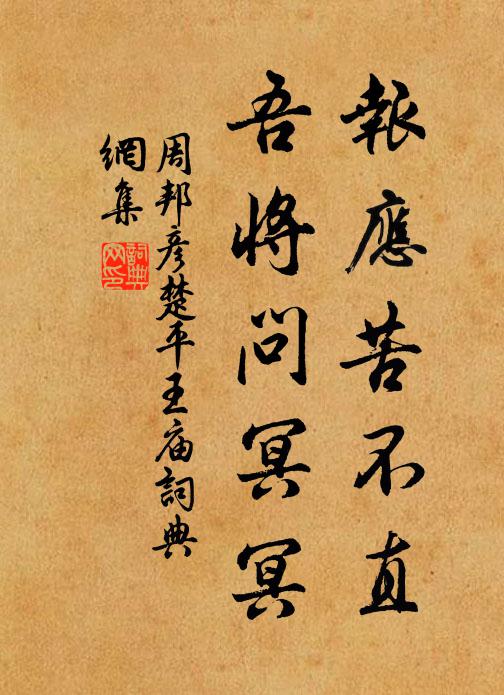 報應苦不直
吾將問冥冥
周邦彥楚平王庙詞典
網集
詞典
网印